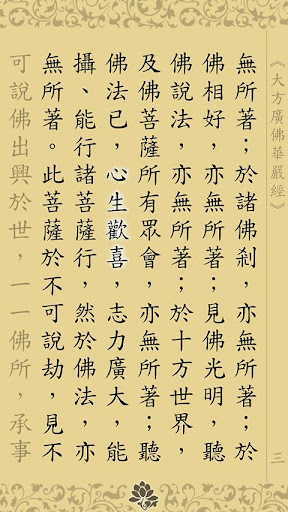 《大方廣佛華嚴經》
三
無所著；於諸佛剎，亦無所著；於
佛相好，亦無所著；見佛光明，聽
佛說法，亦無所著；於十方世界，
及佛菩薩所有眾會，亦無所著；聽
佛法已，心生歡喜，志力廣大，能
攝、能行諸菩薩行，然於佛法，亦
無所著。此菩薩於不可說劫，見不
可說佛出興於世，一一佛所，承事